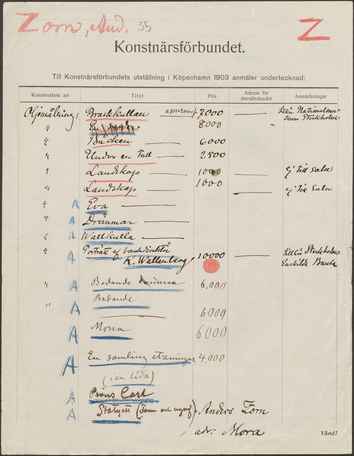 Zorn, And. 55
Z
Konstnärsförbundet.
Till Konstnärsförbundets utställning i Köpenhamn 1903 anmäler undertecknad:
Konstverkets art Titel Pris Adress för återsändandet Anmärkningar
Oljemålning, Brasklullan 8000 Nationalmuseum Stockholm
" 8000
" 6000
" Under en Tall 2800
" Landskap 1000 Ej till salu
" Landskap 1000 Ej till salu
" A Eva
" A Drömmar
" A Wallkulla
" Porträtt af bankdirektör
A K. Wallenberg 10000 Stockholms Enskilda Bank
" A Badande qvinna 6,000
A Badande 6000
A Mona 6000
A En samling etsningar 4.000
A Prins Carl
A Statyett Anders Zorn
adr. Mora